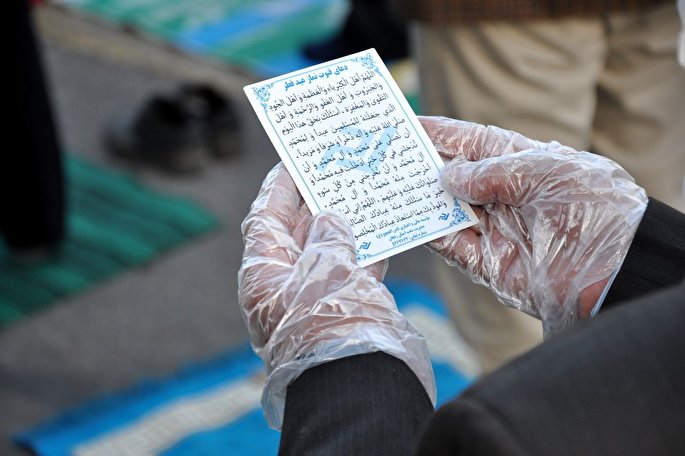 دعای قنوت نماز عید فطر
اللهم أهل الکبریاء والعظمة و أهل الجود
والجبروت و أهل العفو والرحمة و أهل
التقوی والمغفرة، اسئلک بحق هذا الیوم
الذی جعلته للمسلمین عیداً و لمحمد
صلی الله علیه و آله ذخراً و شرفاً و مزیداً،
محمد و آل محمد و أن
تدخلنی فی کل خیر أدخلت فیه محمداً و
آل محمد و أن تخرجنی من کل سوء
أخرجت منه محمداً و آل محمد،
صلواتک علیه و علیهم، اللهم إنی
خیر ما سئلک منه عبادک
وأعوذ بک مما استعاذ عبادک المخلصو